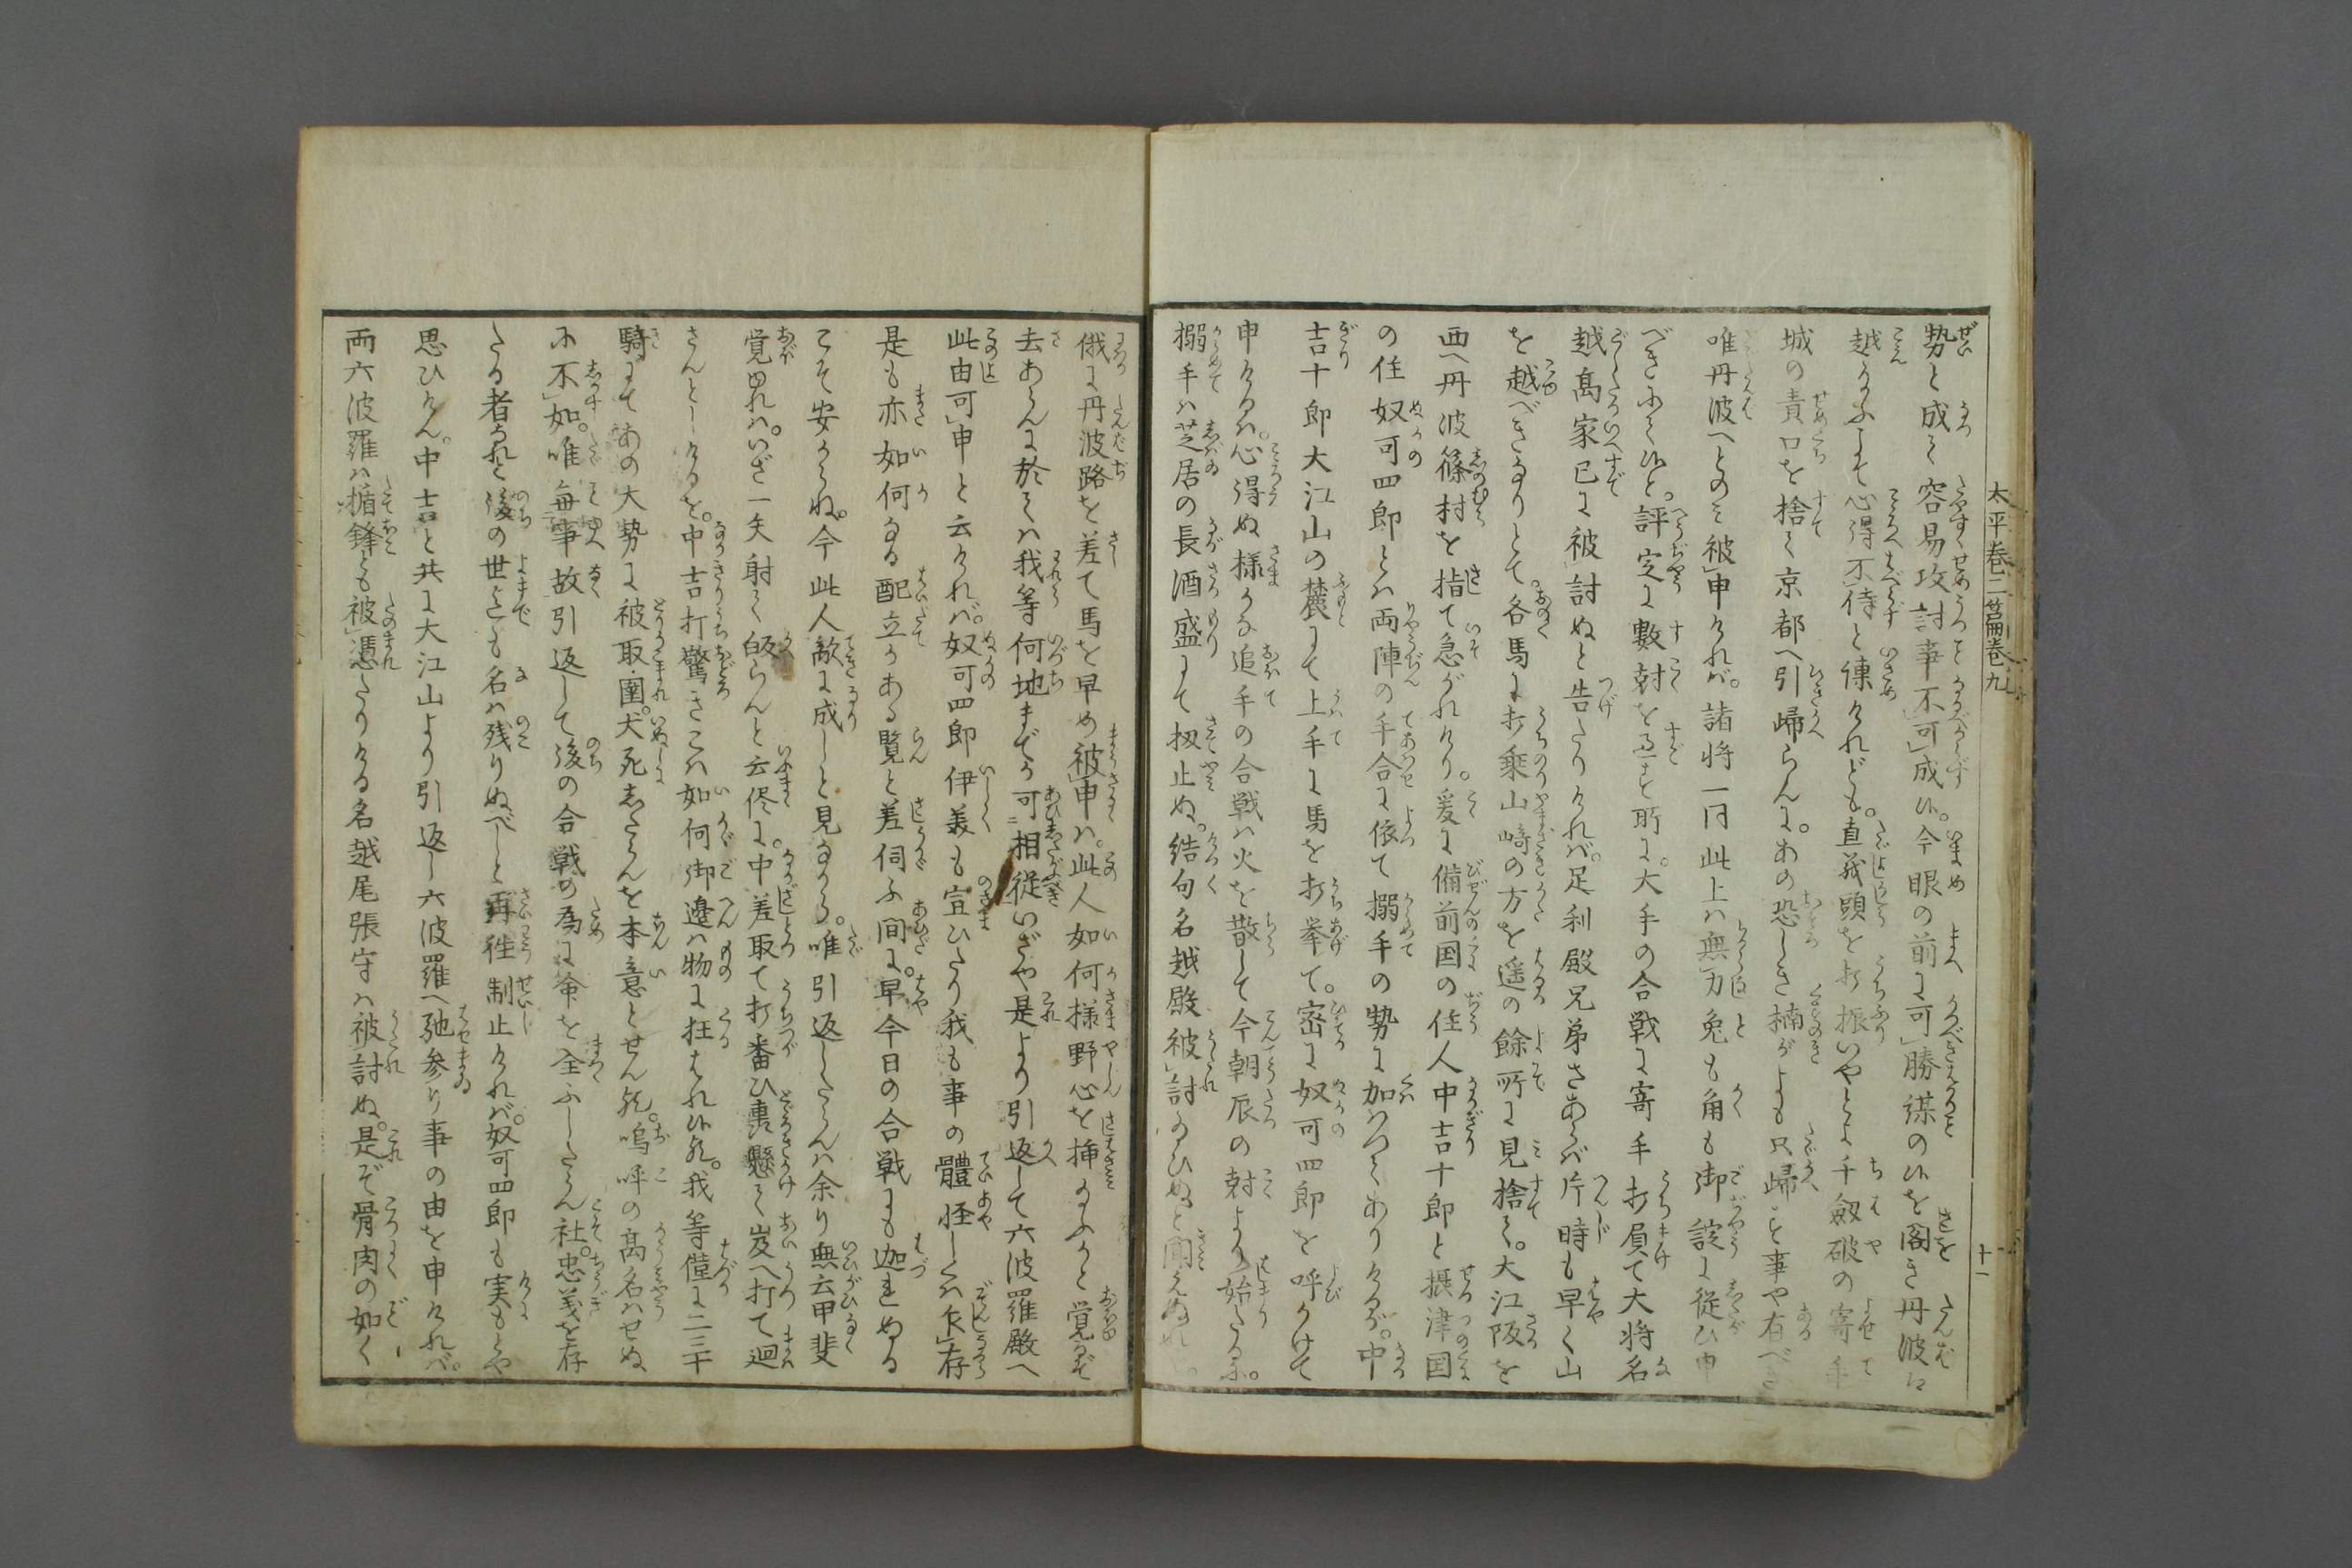 太平巻二篇巻九
十一
勢と成て容易攻討事不可成候。今眼の前に可勝謀の候を閣き丹波に
越給ふ事心得不侍と諌けれども。直義頭を打振いやとよ千劔破の寄手
城の責口を捨て京都へ引帰らんに。あの恐しき楠がよも只帰す事や有べき
唯丹波へとのミ被申けれバ。諸将一同此上ハ無力兎も角も御諚に従ひ申
べきにて候と。評定に数尅を過す所に。大手の合戦に寄手打負て大将名
越髙家已に被討ぬと告たりけれバ。足利殿兄弟さあらバ片時も早く山
を越べきなりとて。各馬に打乗山﨑の方を遥の餘所に見捨て。大江阪を
西へ丹波篠村を指て急がれけり。爰に備前国の住人中吉十郎と摂津国
の住奴可四郎とハ両陣の手合に依て搦手の勢に加ハつてありけるが。中
吉十郎大江山の麓にて上手に馬を打挙て。密に奴可四郎を呼かけて
申けるハ。心得ぬ様かな追手の合戦ハ火を散して今朝辰の尅より始たるに。
搦手ハ芝居の長酒盛にて扨止ぬ。結句名越殿被討給ひぬと聞えぬれバ。
俄に丹波路を差て馬を早め被申ハ。此人如何様野心を挿給ふかと覚るぞ
去あらんに於てハ我等何地まで可相従いざや是より引返して六波羅殿へ
此由可申と云けれバ。奴可四郎伊義も宜ひたり我も事の體怪しくハ乍存
是も亦如何なる配立かある覧と差伺ふ間に。早今日の合戦にも迦れぬる
こそ安からね。今此人敵に成しと見ながら。唯引返したらんハ余り無云甲斐
覚ゆれハ。いざ一矢射て皈らんと云侭に。中差取て打番ひ轟懸て岌へ打て廻
さんとしけるを。中吉打驚きこハ如何御邊ハ物に狂はれ候歟。我等僅に二三十
騎にてあの大勢に被取圍。犬死したらんを本意とせん歟。嗚呼の髙名ハせぬ
に不如。唯無事故引返して後の合戦の為に命を全ふしたらん社。忠義を存
たる者なれと後の世までも名ハ残りぬべしと再往制止けれバ。奴可四郎も実もとや
思ひけん。中吉と共に大江山より引返し六波羅へ馳参り事の由を申けれバ。
両六波羅ハ楯鋒とも被憑たりける名越尾張守ハ被討ぬ。是ぞ骨肉の如く